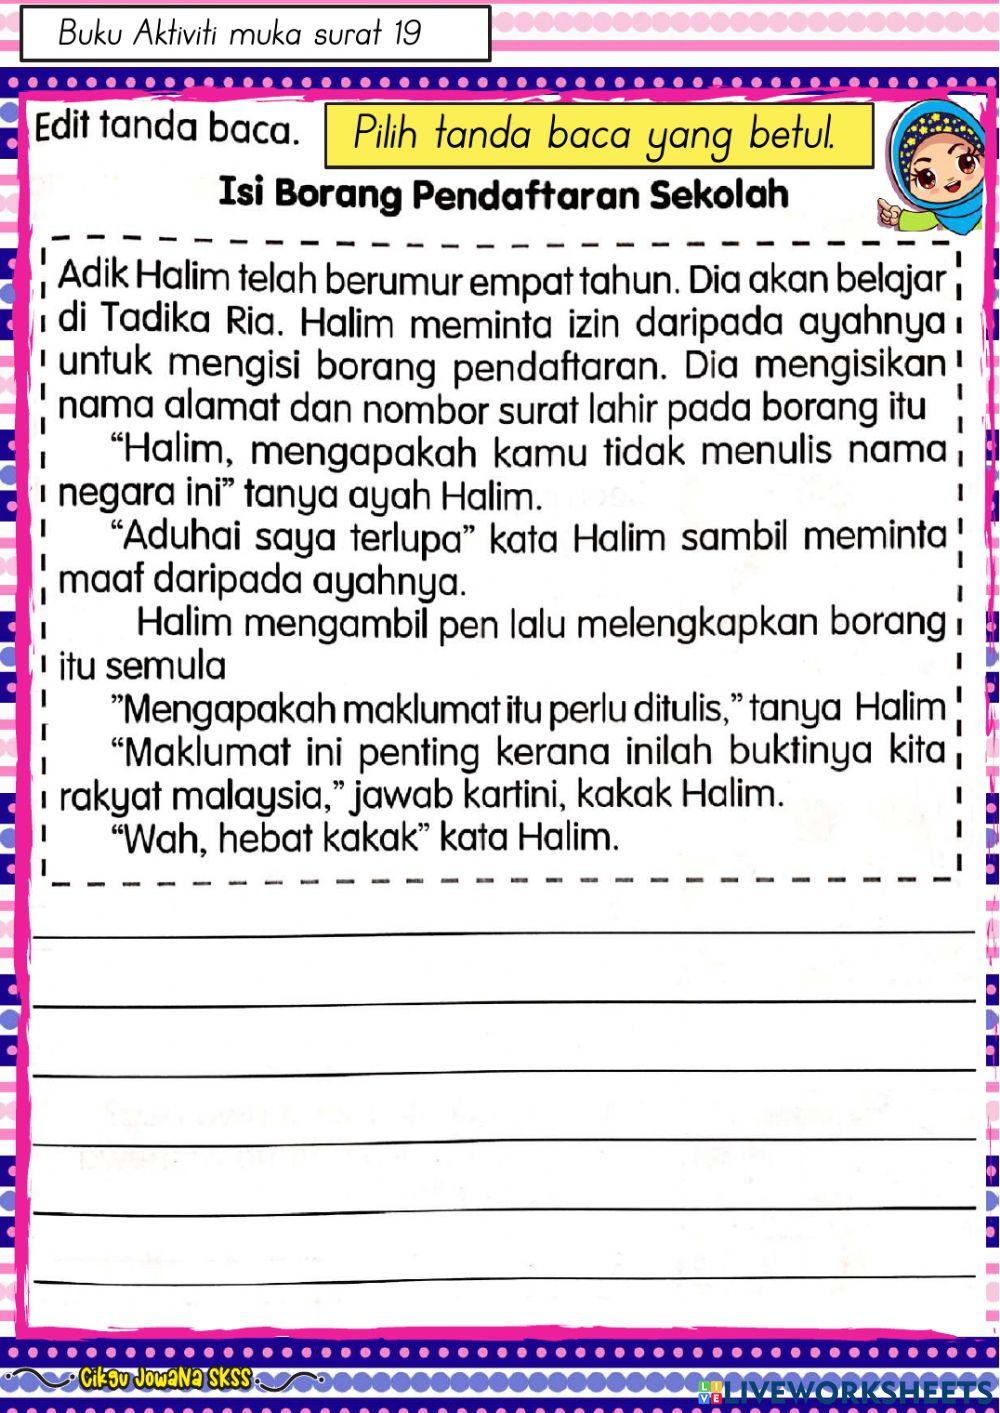 Buku Aktiviti muka surat 19
Edit tanda baca.
Pilih tanda baca yang betul.
Isi Borang Pendaftaran Sekolah
Adik Halim telah berumur empat tahun. Dia akan belajar
di Tadika Ria. Halim meminta izin daripada ayahnya
untuk mengisi borang pendaftaran. Dia mengisikan
nama alamat dan nombor surat lahir pada borang itu
“Halim, mengapakah kamu tidak menulis nama
negara ini” tanya ayah Halim.
“Aduhai saya terlupa” kata Halim sambil meminta
maaf daripada ayahnya.
Halim mengambil pen lalu melengkapkan borang
itu semula
”Mengapakah maklumat itu perlu ditulis,” tanya Halim
“Maklumat ini penting kerana inilah buktinya kita
rakyat malaysia,” jawab kartini, kakak Halim.
“Wah, hebat kakak” kata Halim.
Cikgu JowaNa SKSS
LIVE LIVEWORKSHEETS